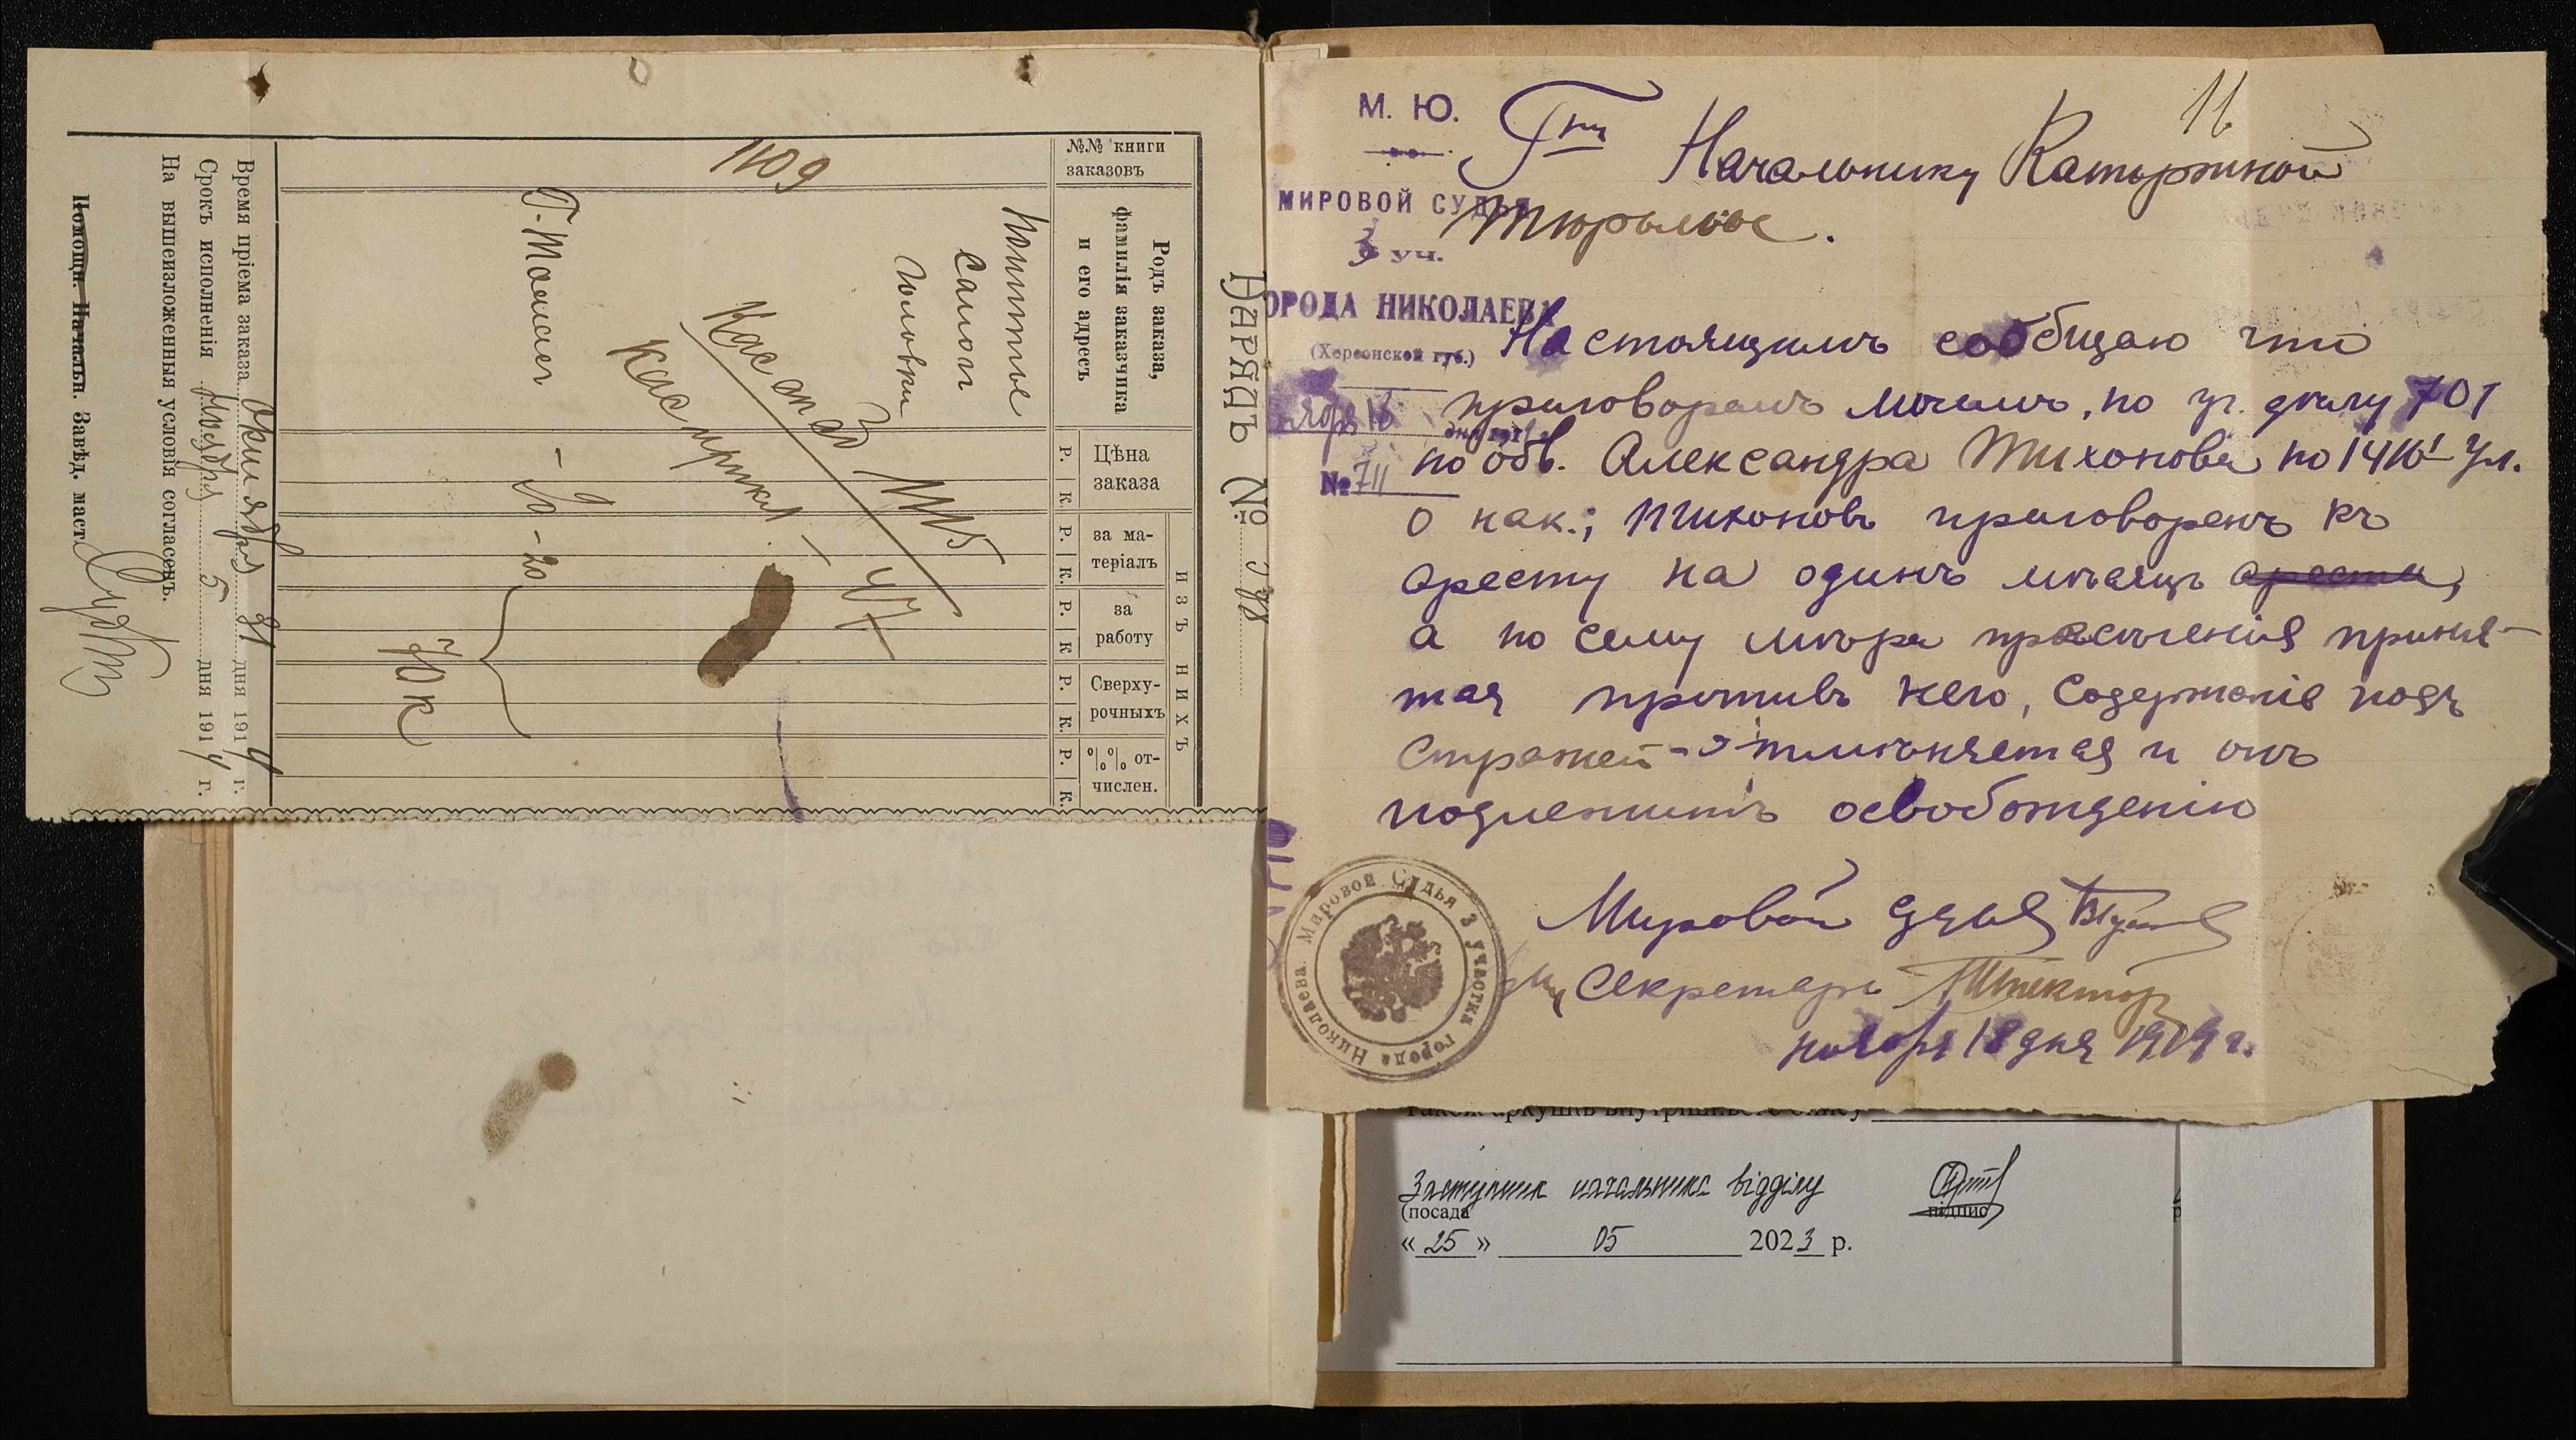 Нарядъ №
№№ книги заказовъ
Родъ заказа, фамилія заказчика и его адресъ
Цѣна заказа
изъ нихъ
за ма-
теріалъ
за
работу
Сверху-
рочныхъ
%% от-
числен.
Р. К. Р. К. Р. К. Р. К. Р. К.
1409
Сапог
40 к
Время пріема заказа октября 31 дня 1914 г.
Срокъ исполненія ноября 5 дня 1914 г.
На вышеизложенныя условія согласенъ.
Помощн. Начальн. Завѣд. маст.
11
М. Ю.
МИРОВОЙ СУДЬЯ
3 уч.
ОРОДА НИКОЛАЕВА
(Херсонской губ.)
№ 711
Гну Начальнику Каторжной
Тюрьмы.
Настоящимъ сообщаю что
приговоромъ моимъ, по уг. дѣлу 701
по обв. Александра Тихонова по 1416 Ул.
о нак.; Тихоновъ приговоренъ къ
аресту на одинъ мѣсяцъ ареста,
а по сему мѣра пресѣченія приня-
тая противъ него, Содержаніе подъ
Стражей - отмѣняется и онъ
подлежитъ освобожденію
Мировой Судья
Секретарь
ноября 18 дня 1914 г.
Мировой Судья 3 участка города Николаева.
також аркушів внутрішнього опису
Заступник начальника відділу
(посада
підпис
« 25 » 05 2023 р.